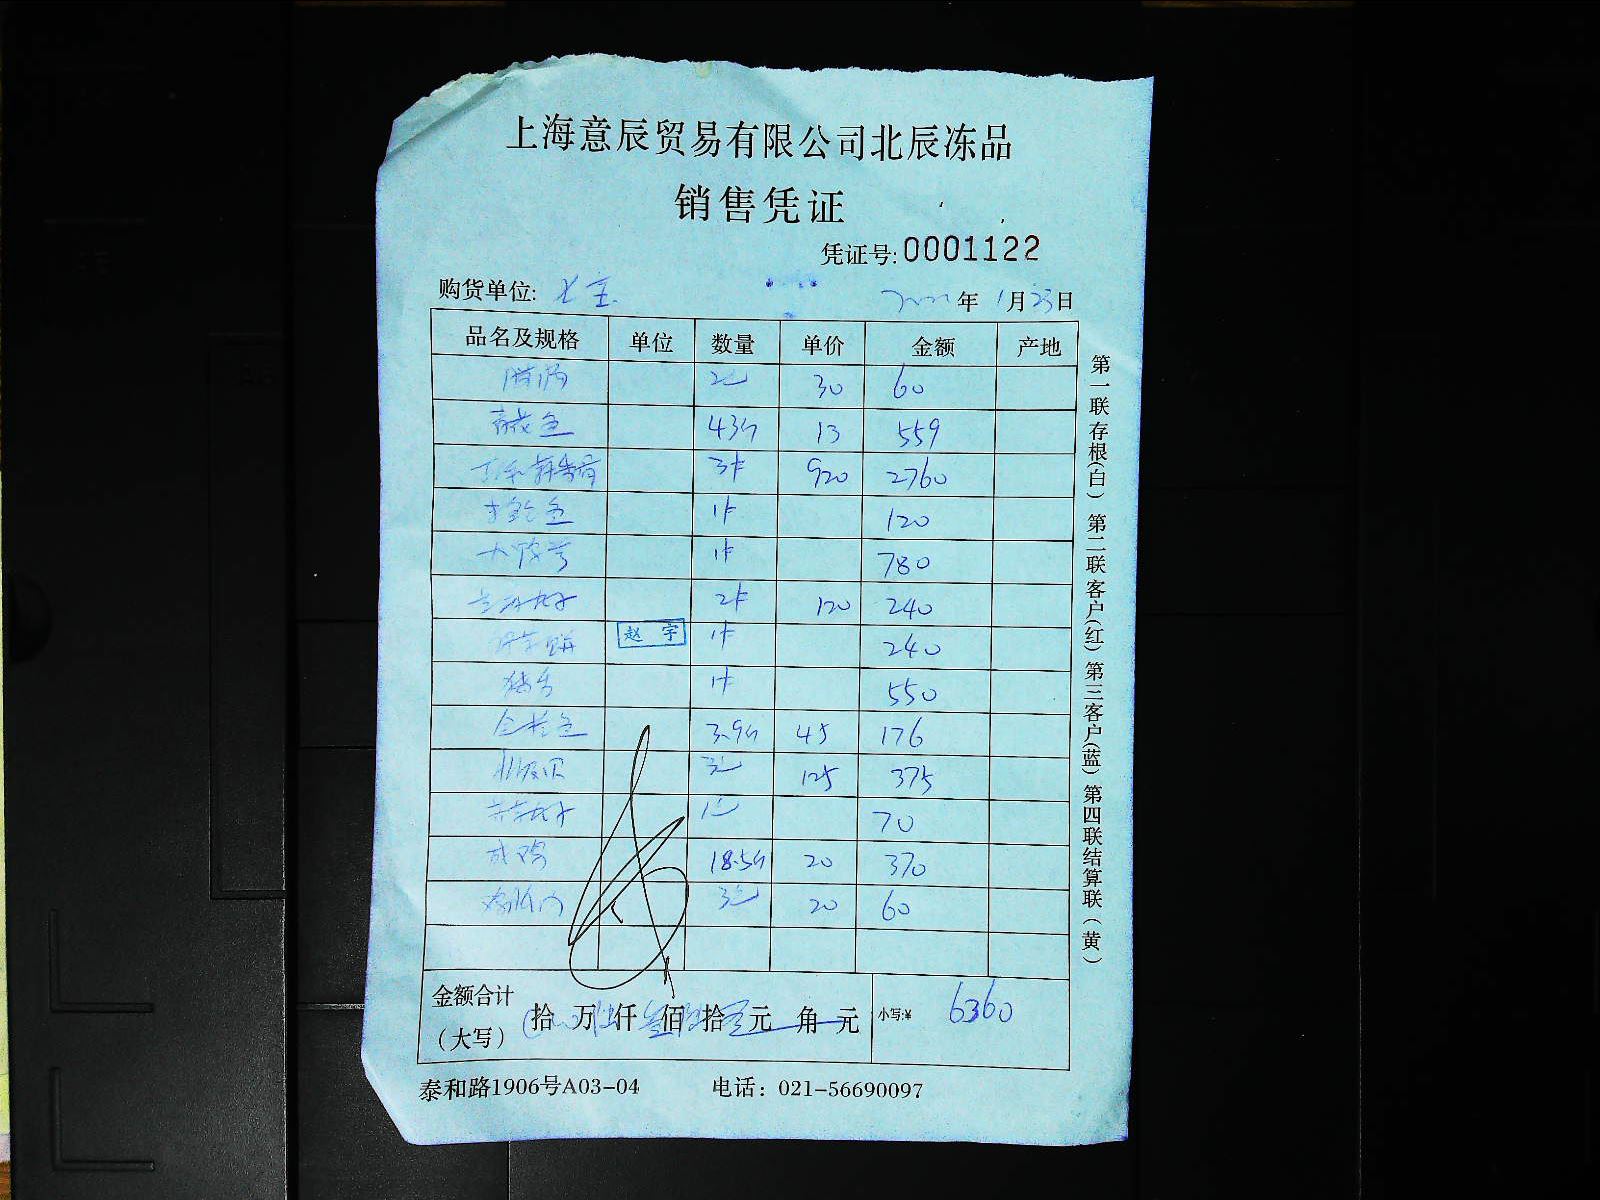 上海意辰贸易有限公司北辰冻品
销售凭证
凭证号:0001122
购货单位: 七宝 年 1月23日
品名及规格 单位 数量 单价 金额 产地
30 60
青花鱼 43斤 13 559
3件 920 2760
鱼 1件 120
1件 780
丸子 2件 120 240
饼 赵宇 1件 240
猪 1件 550
金枪鱼 3.9斤 45 176
北极贝 3包 125 375
丸子 1包 70
咸鸡 18.5斤 20 370
3包 20 60
金额合计
(大写) 拾 万 陆仟 叁佰 陆拾 零元 角 元 小写:¥ 6360
泰和路1906号A03-04 电话: 021-56690097
第一联存根(白) 第二联客户(红) 第三客户(蓝) 第四联结算联(黄)